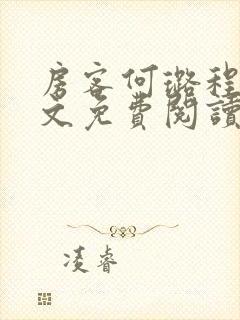 房客何璐程
文免費閱讀
凌睿